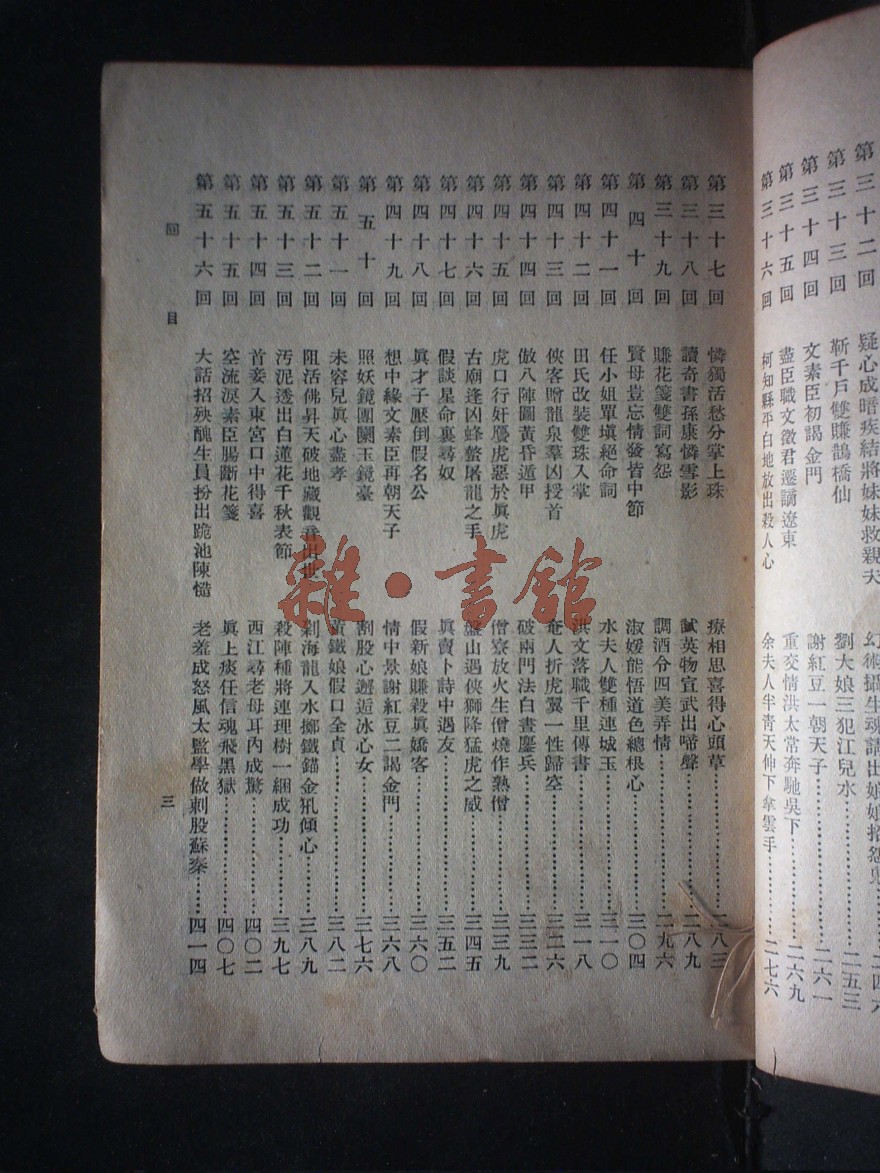 第三十二回 疑心成暗疾結將妹妹救親夫
第三十三回 靳千戶雙賺鵲橋仙 劉大娘三犯江兒水 二五三
第三十四回 文素臣初謁金門 謝紅豆一朝天子 二六一
第三十五回 盡臣職文徵君遷謫遼東 重交情洪太常奔馳吳下 二六九
第三十六回 柯知縣平白地放出殺人心 余夫人半青天伸下拿雲手 二七六
第三十七回 憐獨活愁分掌上珠 療相思喜得心頭草 二八三
第三十八回 讀奇書孫康憐雪影 試英物宣武出啼聲 二八九
第三十九回 賺花箋雙詞寫怨 調酒分四美弄情 二九六
第四十回 賢母豈忘情發皆中節 淑媛能悟道色總根心 三〇四
第四十一回 任小姐單填絕命詞 水夫人雙種連城玉 三一〇
第四十二回 田氏改裝雙珠入掌 洪文落職千里傳書 三一八
第四十三回 俠客贈龍泉羣凶授首 奄人折虎翼一性歸空 三二六
第四十四回 倣八陣圖黃昏遁甲 破兩門法白晝鏖兵 三三二
第四十五回 虎口行奸贋虎惡於眞虎 僧寮放火生僧燒作熟僧 三三九
第四十六回 古廟逢凶蜂螫屠龍之手 盤山遇俠獅降猛虎之威 三四五
第四十七回 假談星命裏尋奴 眞賣卜詩中遇友 三五二
第四十八回 眞才子壓倒假名公 假新娘賺殺眞嬌客 三六〇
第四十九回 想中緣文素臣再朝天子 情中景謝紅豆二謁金門 三六八
第五十回 照妖鏡團圞玉鏡臺 割股心邂逅冰心女 三七六
第五十一回 未容兒眞心盡孝 黃鐵娘假口全貞 三八二
第五十二回 阻活佛昇天破地藏觀音出世 剁海龍入水擲鐵錨金犼傾心 三八九
第五十三回 汚泥透出白蓮花千秋表節 殺陣種將連理樹一綑成功 三九七
第五十四回 首妾入東宮口中得喜 西江尋老母耳內成驚 四〇二
第五十五回 空流淚素臣腸斷花箋 眞上痰任信魂飛黑獄 四〇七
第五十六回 大話招殃醜生員扮出跪池陳慥 老羞成怒風太監學做刺股蘇秦 四一四
回目 三
雜·書館